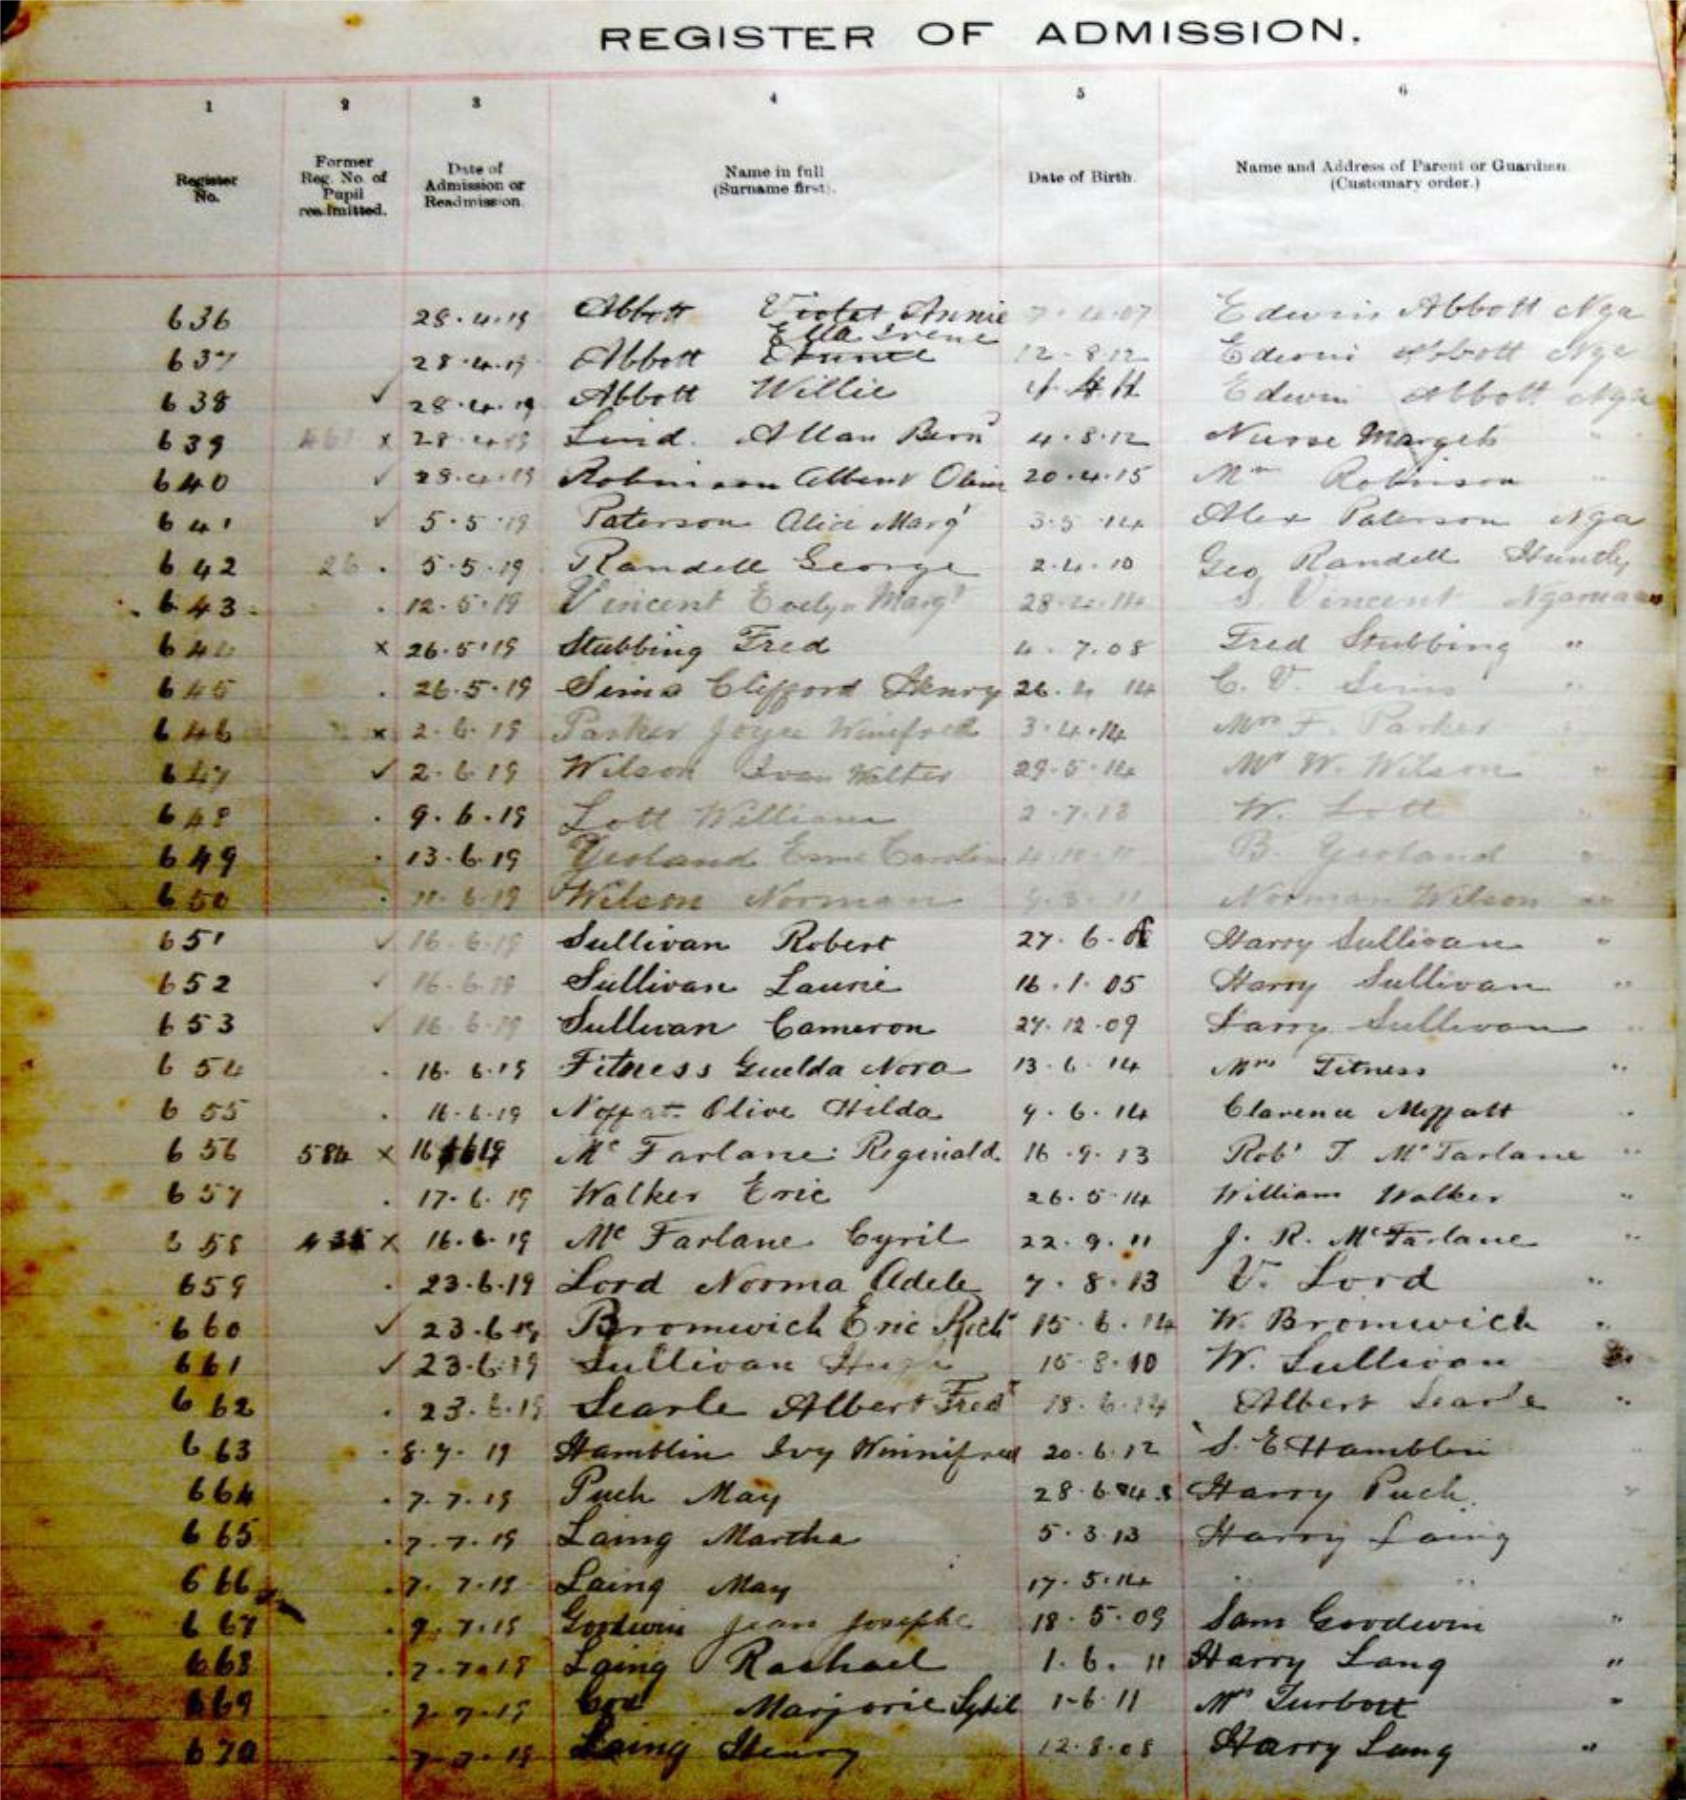 REGISTER OF ADMISSION.
1 2 3 4 5 6
Register No. Former Reg. No. of Pupil readmitted. Date of Admission or Readmission Name in full (Surname first). Date of Birth. Name and Address of Parent or Guardian. (Customary order.)
636 28.4.19 Abbott Violet Annie 7.4.07 Edwin Abbott Nga
Ella Irene
637 28.4.19 Abbott 12.8.12 Edwin Abbott Nga
638 ✓ 28.4.19 Abbott Willie Edwin Abbott Nga
639 x 28.4.19 Lind. Allan 4.8.12 Nurse "
640 ✓ 28.4.19 Robinson Albert 20.4.15 Mrs Robinson "
641 ✓ 5.5.19 Paterson Alice Marg' 3.5.14 Alex Paterson Nga
642 26 . 5.5.19 Randell George 2.4.10 Geo Randell Huntly
643 . 12.5.19 Vincent Evelyn Marg' 28.4.14 S. Vincent
644 x 26.5.19 Stubbing Fred 4.7.08 Fred Stubbing "
645 . 26.5.19 Sims Clifford Henry 26.4.14 C. V. Sims "
646 x 2.6.19 Parker Joyce Winifred 3.4.14 Mrs F. Parker "
647 ✓ 2.6.19 Wilson Ivan Walter 29.5.14 Mr W. Wilson "
648 . 9.6.19 Lott William 2.7.13 W. Lott "
649 . 13.6.19 Yeoland Esme B. Yeoland "
650 . 11.6.19 Wilson Norman 9.3.11 Norman Wilson "
651 ✓ 16.6.19 Sullivan Robert 27.6. Harry Sullivan "
652 ✓ 16.6.19 Sullivan Laurie 16.1.05 Harry Sullivan "
653 ✓ 16.6.19 Sullivan Cameron 27.12.09 Harry Sullivan "
654 . 16.6.19 Fitness Guelda Nora 13.6.14 Mrs Fitness "
655 . 16.6.19 Olive Hilda 9.6.14 Clarence Moffatt "
656 584 x 16 Mc Farlane Reginald 16.9.13 Robt J. McFarlane "
657 . 17.6.19 Walker Eric 26.5.14 William Walker "
658 x 16.6.19 Mc Farlane Cyril 22.9.11 J. R. McFarlane "
659 . 23.6.19 Lord Norma Adele 7.8.13 V. Lord "
660 ✓ 23.6.19 Bromwich Eric Rich' 15.6.14 W. Bromwich "
661 ✓ 23.6.19 Sullivan Hugh 15.8.10 W. Sullivan
662 . 23.6.19 Searle Albert Fred' 18.6.14 Albert Searle "
663 . 8.7.19 Hamblin Ivy Winnifred 20.6.12 S. E Hamblin
664 . 7.7.19 Puch May 28.6. Harry Puch "
665 . 7.7.19 Laing Martha 5.3.13 Harry Laing
666 . 7.7.19 Laing May 17.5.14 " "
667 . 9.7.19 Goodwin Jean 18.5.09 Sam Goodwin "
668 . 7.7.19 Laing Rachael 1.6.11 Harry Lang "
669 . 7.7.19 Cox Marjorie Sybil 1-6.11 Mrs Turbott "
670 . 7.7.19 Laing Henry 12.8.08 Harry Lang "